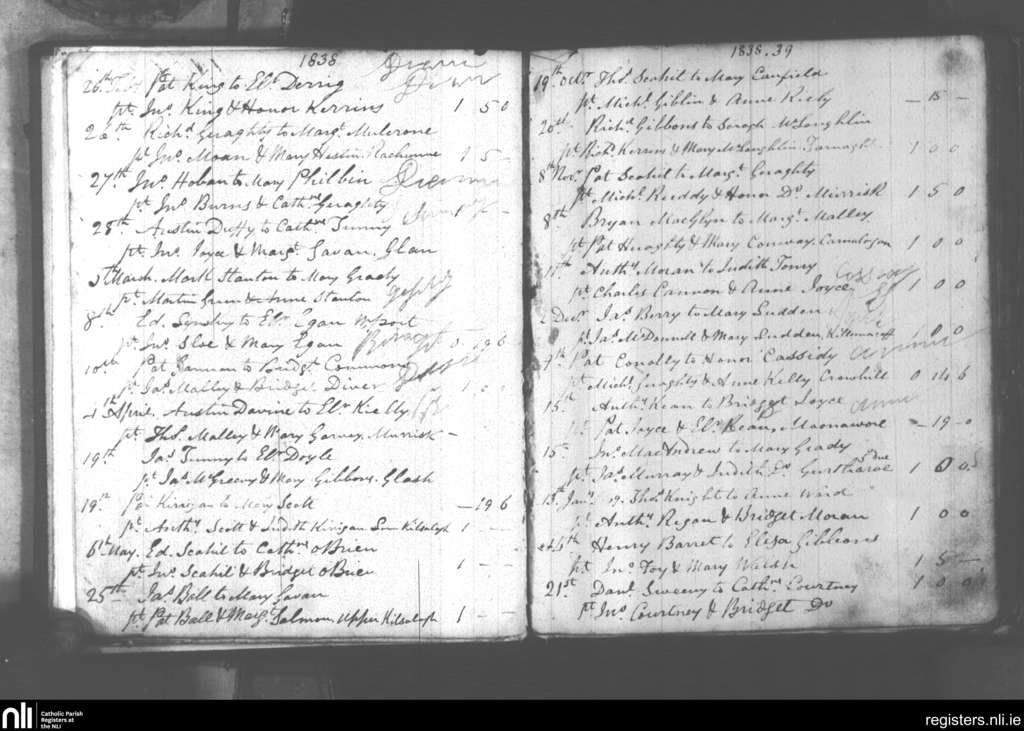 1838
26th Feb Pat King to Elr. Derrig
pt. Jno. King & Honor Kerrins 1 5 0
26th Richd. Geraghty to Margt. Mulcrone
pt. Jno. Moran & Mary Hestin 1 5 -
27th Jno. Hoban to Mary Philbin
pt. Jno. Burns & Cathne. Geraghty
28th Austin Duffy to Cathne. Tunny
pt. Jno. Joyce & Margt. Gavan, Glan
5th March. Mark Stanton to Mary Grady
pt. Martin & Anne Stanton
8th Ed. to Elr. Egan Wport
pt. Jno. Sloe & Mary Egan 0 19 6
10th Pat Gannon to Bridgt. Commons
pt. Jas. Malley & Bridget Diver
April. Austin Davine to Elr. Kielly
pt. Thos. Malley & Mary Garvey, Murrisk -
19th Jas. Tunny to Elr. Doyle
pt. Jas. McGreevy & Mary Gibbons, Glosh
19th Pat Kirigan to Mary Scott - 19 6
pt. Anthy. Scott & Judith Kirigan Kilsalagh 1 - -
6th May. Ed. Scahil to Cathne. OBrien
pt. Jno. Scahil & Bridget OBrien 1 - -
25th Jas. Ball to Mary Gavan
pt. Pat Ball & Margt. Salmon, Upper Kilsalagh 1 - -
1838.39
19th Octr. Thos. Scahil to Mary Canfield
pt. Michl. Giblin & Anne Kiely - 15 -
Richd. Gibbons to Saragh McLoughlin
pt. Richd. Kerrin & Mary McLoughlin 1 0 0
8th Novr. Pat Scahil to Margt. Geraghty
pt. Michl. Ruddy & Honor Do. Murrisk 1 5 0
8th Bryan MacGlyn to Margt. Malley
pt. Pat Heraghty & Mary Conway, 1 0 0
11th Anthy. Moran to Judith Toney
pt. Charles Cannon & Anne Joyce 1 0 0
2 Decr. Jas. Berry to Mary Sudden
pt. Jas. McDonnell & Mary Sudden, Kilmina 1 0 0
9th Pat Conolly to Honor Cassidy
pt. Michl. Geraghty & Anne Kelly Crowhill 0 14 6
15th Anthy. Kean to Bridget Joyce
pt. Pat Joyce & Elr. Kean, - 19 - 0
15th Jno. MacAndrew to Mary Grady
pt. Jas. Murray & Judith Do. 5 Due 1 0 0
13th Jany. 9. Thos. Knight to Anne Ward
pt. Anthy. Regan & Bridget Moran 1 0 0
14th Henry Barret to Eliza Gibbons
pt. Jno. Foy & Mary Walsh 1 5 -
21st Danl. Sweeny to Cathne. Courtney 1 0 0
pt. Jno. Courtney & Bridget Do
nli Catholic Parish
Registers at
the NLI
registers.nli.ie